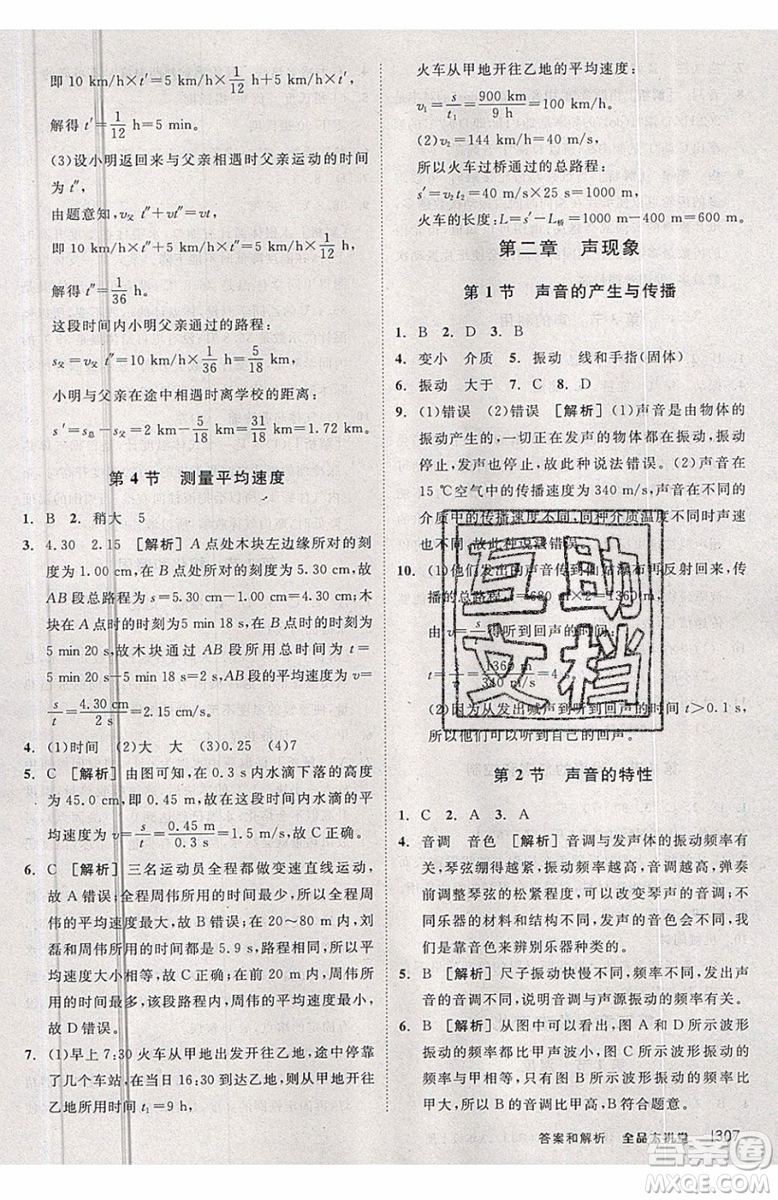 即 10 km/h×t′=5 km/h×1/12 h+5 km/h×t′,
解得 t′=1/12 h=5 min。
(3)设小明返回来与父亲相遇时父亲运动的时间
为 t″,
由题意知,v父 t″+vt″=vt′,
即 10 km/h×t″+5 km/h×t″=5 km/h×1/12 h,
解得:t″=1/36 h,
这段时间内小明父亲通过的路程:
s父=v父t″=10 km/h×1/36 h=5/18 km,
小明与父亲在相遇时离学校的距离:
s′=s总-s父=2 km-5/18 km=31/18 km=1.72 km。
第 4 节 测量平均速度
1. B 2. 稍大 5
3. 4.30 2.15 [解析] A 点处木块左边缘所对的刻
度为 1.00 cm,在 B 点处所对的刻度为 5.30 cm,故
AB 段总路程为 s=5.30 cm-1.00 cm=4.30 cm;木
块在 A 点时的时刻为5 min 18 s,在 B 点时的时刻为
5 min 20 s,故木块通过 AB 段所用总时间 t=
5 min 20 s-5 min 18 s=2 s;AB 段的平均速度 v=
s/t=4.30 cm/2 s=2.15 cm/s。
4. (1)时间 (2)大 大 (3)0.25 (4)7
5. C [解析] 由图可知,在0.3 s 内水滴下落的高度
为 45.0 cm,即 0.45 m,在这段时间内水滴的平
均速度为 v=s/t=0.45 m/0.3 s=1.5 m/s,故 C 正确。
6. C [解析] 三名运动员全程都做变速直线运动,
故 A 错误;全程周伟所用的时间最少,所以全程周
伟的平均速度最大,故 B 错误;在 20～80 m 内,刘
磊和周伟所用的时间都是 5.9 s,路程相同,故平均
速度大小相同,故 C 正确;在 80～100 m 内,吴永
华用时最多,该段路程内,周伟的平均速度最大,
故 D 错误。
7. (1)早上 7:30 火车从甲地出发开往乙地,途中停靠
了几个车站,在当日 16:30 到达乙地,火车从甲地开往
乙地所用时间 t1=9 h,
火车从甲地开往乙地的平均速度:
v1=s/t1=900 km/9 h=100 km/h;
(2)v2=144 km/h=40 m/s,
所以火车过桥通过的总路程:
s′=v2t2=40 m/s×25 s=1000 m,
火车的长度:L=s′-L桥=1000 m-400 m=600 m。
第二章 声现象
第 1 节 声音的产生与传播
1. B 2. D 3. B
4. 变小 介质 5. 振动 线和手指(固体)
6. 振动 大于 7. C 8. D
9. (1)错误 (2)错误 [解析] (1)声音是由物体的
振动产生的,一切正在发声的物体都在振动,振动
停止,发声也停止,故此种说法错误。(2)声音在
15 ℃空气中的传播速度为 340 m/s,声音在不同的
介质中的传播速度不同,同种介质温度不同时声速
也不同,故此种说法错误。
10. (1)他们发出的声音传到对面 瀑布再反射回来,
传播的总路程 s=680 m×2=1360 m,
由 v=s/t 得听到回声的时间:
t=s/v=1360 m
(2)因为从发出喊声到听到回声的时间 t>0.1 s,
所以他们可以听到自己的回声。
第 2 节 声音的特性
1. C 2. A 3. A
4. 音调 音色 [解析] 音调与发声体的振动频率有
关,琴弦绷得越紧,振动频率越高,故在用琴演奏
前调整琴弦的松紧程度,可以改变琴声的音调;
不同乐器的材料和结构不同,发声的音色不同,我
们是靠音色来辨别乐器种类的。
5. B [解析] 尺子振动快慢不同,频率不同,发声
的音调不同,说明音调与声源振动的频率有关。
6. B [解析] 从图中可以看出,图 A 和 D 所示波形
振动的频率比甲声音小,图 B 所示波形振动的频率比
甲大,故其音调比甲高,B 符合题意。
答案和解析 全品大讲堂 307
互助
文档
MXQE.COM